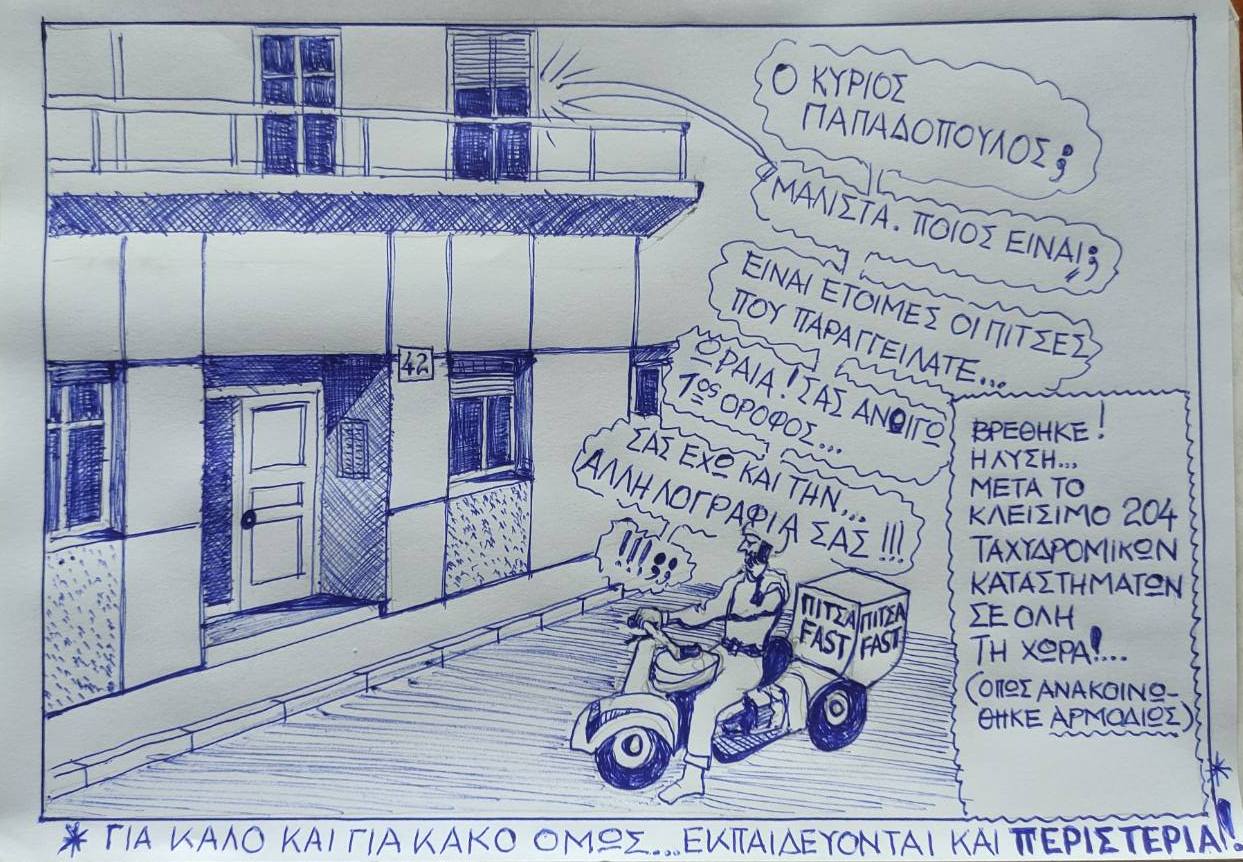 Ο ΚΥΡΙΟΣ
ΠΑΠΑΔΟΠΟΥΛΟΣ;
ΜΑΛΙΣΤΑ. ΠΟΙΟΣ ΕΙΝΑΙ;
ΕΙΝΑΙ ΕΤΟΙΜΕΣ ΟΙ ΠΙΤΣΕΣ
ΠΟΥ ΠΑΡΑΓΓΕΙΛΑΤΕ...
ΩΡΑΙΑ! ΣΑΣ ΑΝΟΙΓΩ
1ος ΟΡΟΦΟΣ...
ΣΑΣ ΕΧΩ ΚΑΙ ΤΗΝ...
ΑΛΛΗΛΟΓΡΑΦΙΑ ΣΑΣ!!!
!!!;;
42
ΠΙΤΣΑ
FAST
ΠΙΤΣΑ
FAST
ΒΡΕΘΗΚΕ!
Η ΛΥΣΗ...
ΜΕΤΑ ΤΟ
ΚΛΕΙΣΙΜΟ 204
ΤΑΧΥΔΡΟΜΙΚΩΝ
ΚΑΤΑΣΤΗΜΑΤΩΝ
ΣΕ ΟΛΗ
ΤΗ ΧΩΡΑ!...
(ΟΠΩΣ ΑΝΑΚΟΙΝΩ-
ΘΗΚΕ ΑΡΜΟΔΙΩΣ)
*
* ΓΙΑ ΚΑΛΟ ΚΑΙ ΓΙΑ ΚΑΚΟ ΟΜΩΣ...ΕΚΠΑΙΔΕΥΟΝΤΑΙ ΚΑΙ ΠΕΡΙΣΤΕΡΙΑ!.